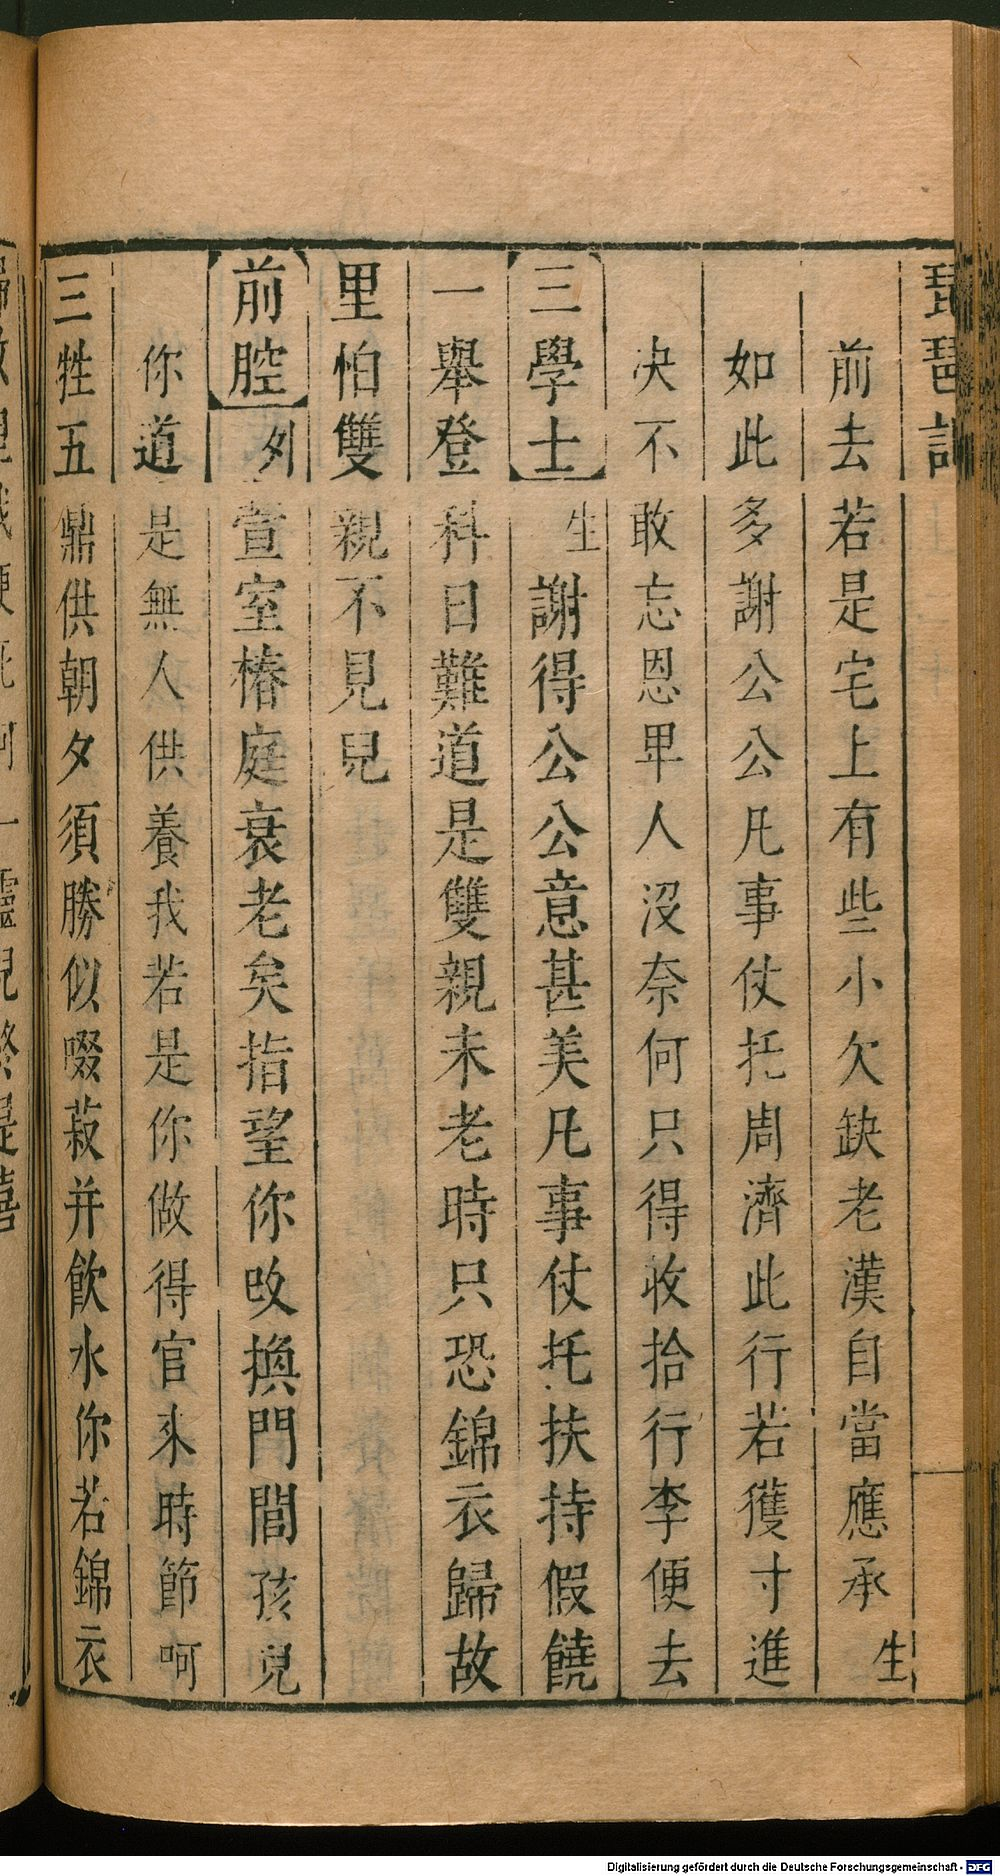 琵琶記
前去若是宅上有些小欠缺老漢自當應承生
如此多謝公公凡事仗托周濟此行若獲寸進
决不敢忘恩卑人没奈何只得收拾行李便去
三學士生謝得公公意甚美凡事仗托扶持假饒
一舉登科日難道是雙親未老時只恐錦衣歸故
里怕雙親不見兒
前腔外萱室椿庭衰老矣指望你改換門閭孩兒
你道是無人供養我若是你做得官來時節呵
三牲五鼎供朝夕須勝似啜菽并飲水你若錦衣
Digitalisierung gefördert durch die Deutsche Forschungsgemeinschaft - DFG